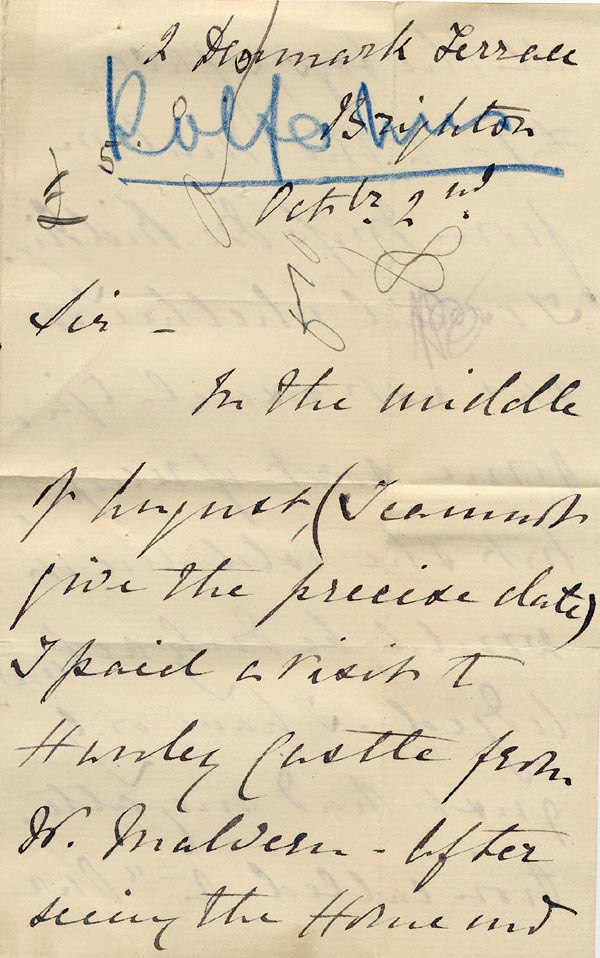 2 Denmark Terrace
Brighton
Octbr. 2nd
£ 5.
Sir -
In the middle
of August, (I cannot
give the precise date)
I paid a visit to
Hanley Castle from
W. Malvern - After
seeing the Home and